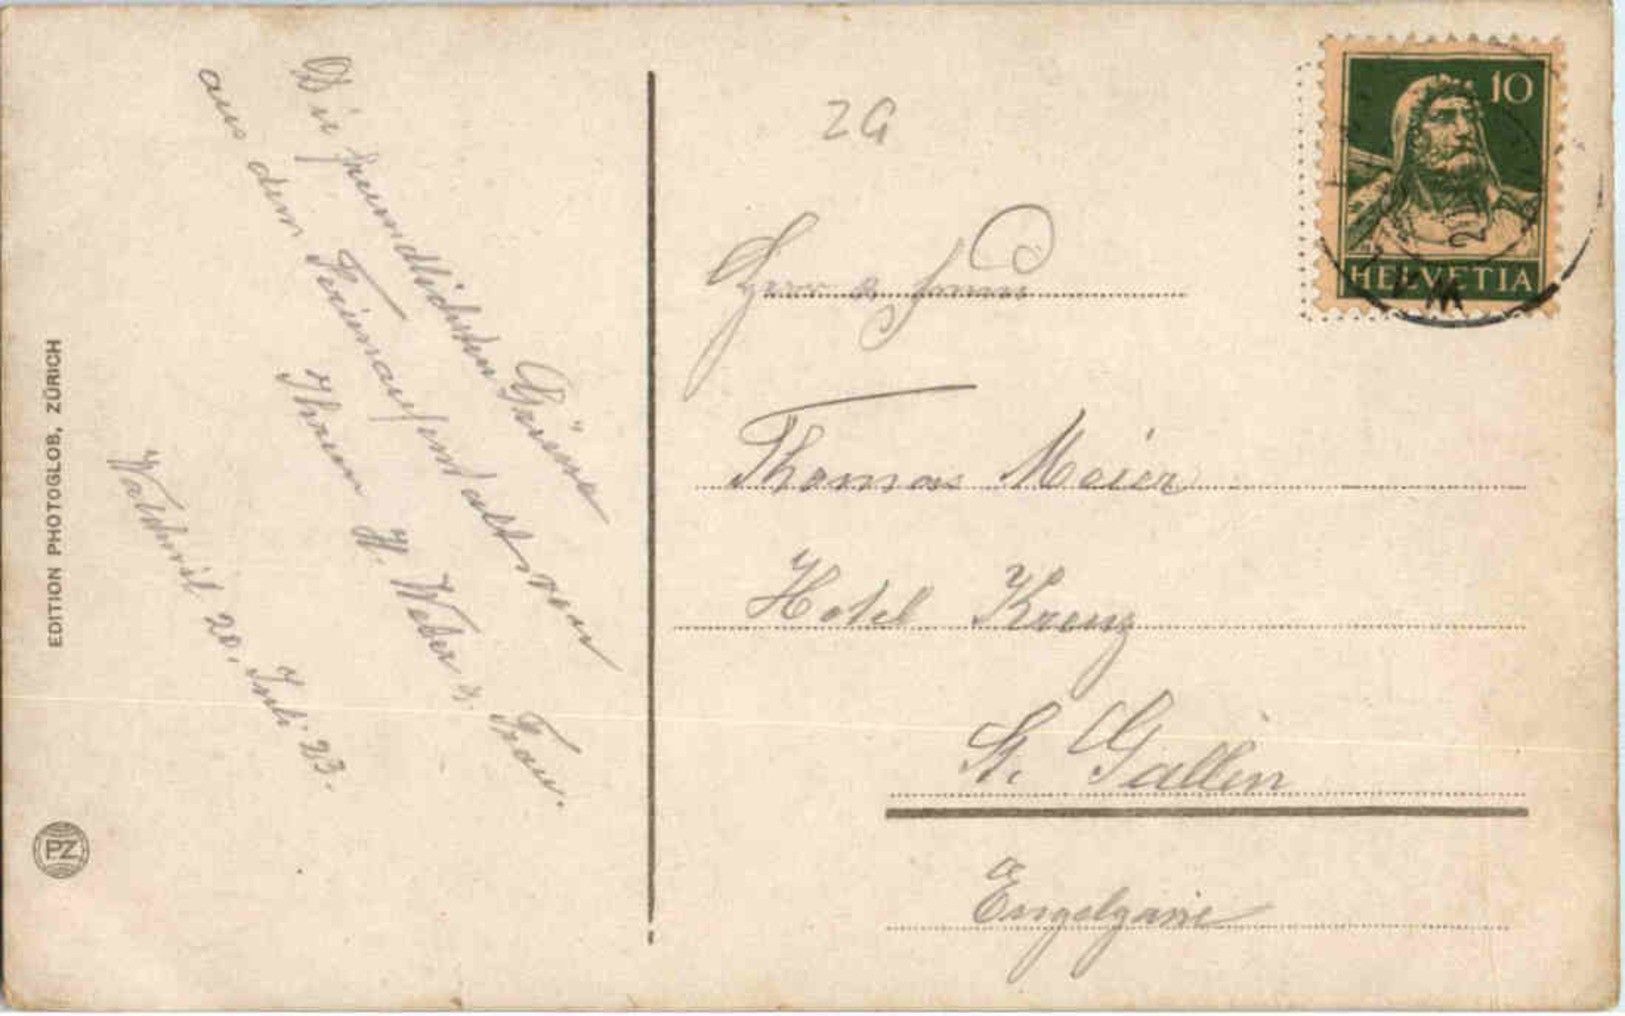 Die freundlichsten Grüsse
aus dem Ferienaufenthalt von
Ihrem H. Weber & Frau.
20. Juli 23.
EDITION PHOTOGLOB, ZÜRICH
PZ
ZG
10
HELVETIA
Herr & Frau
Thomas Meier
Hotel Kreuz
St. Gallen
Engelgasse